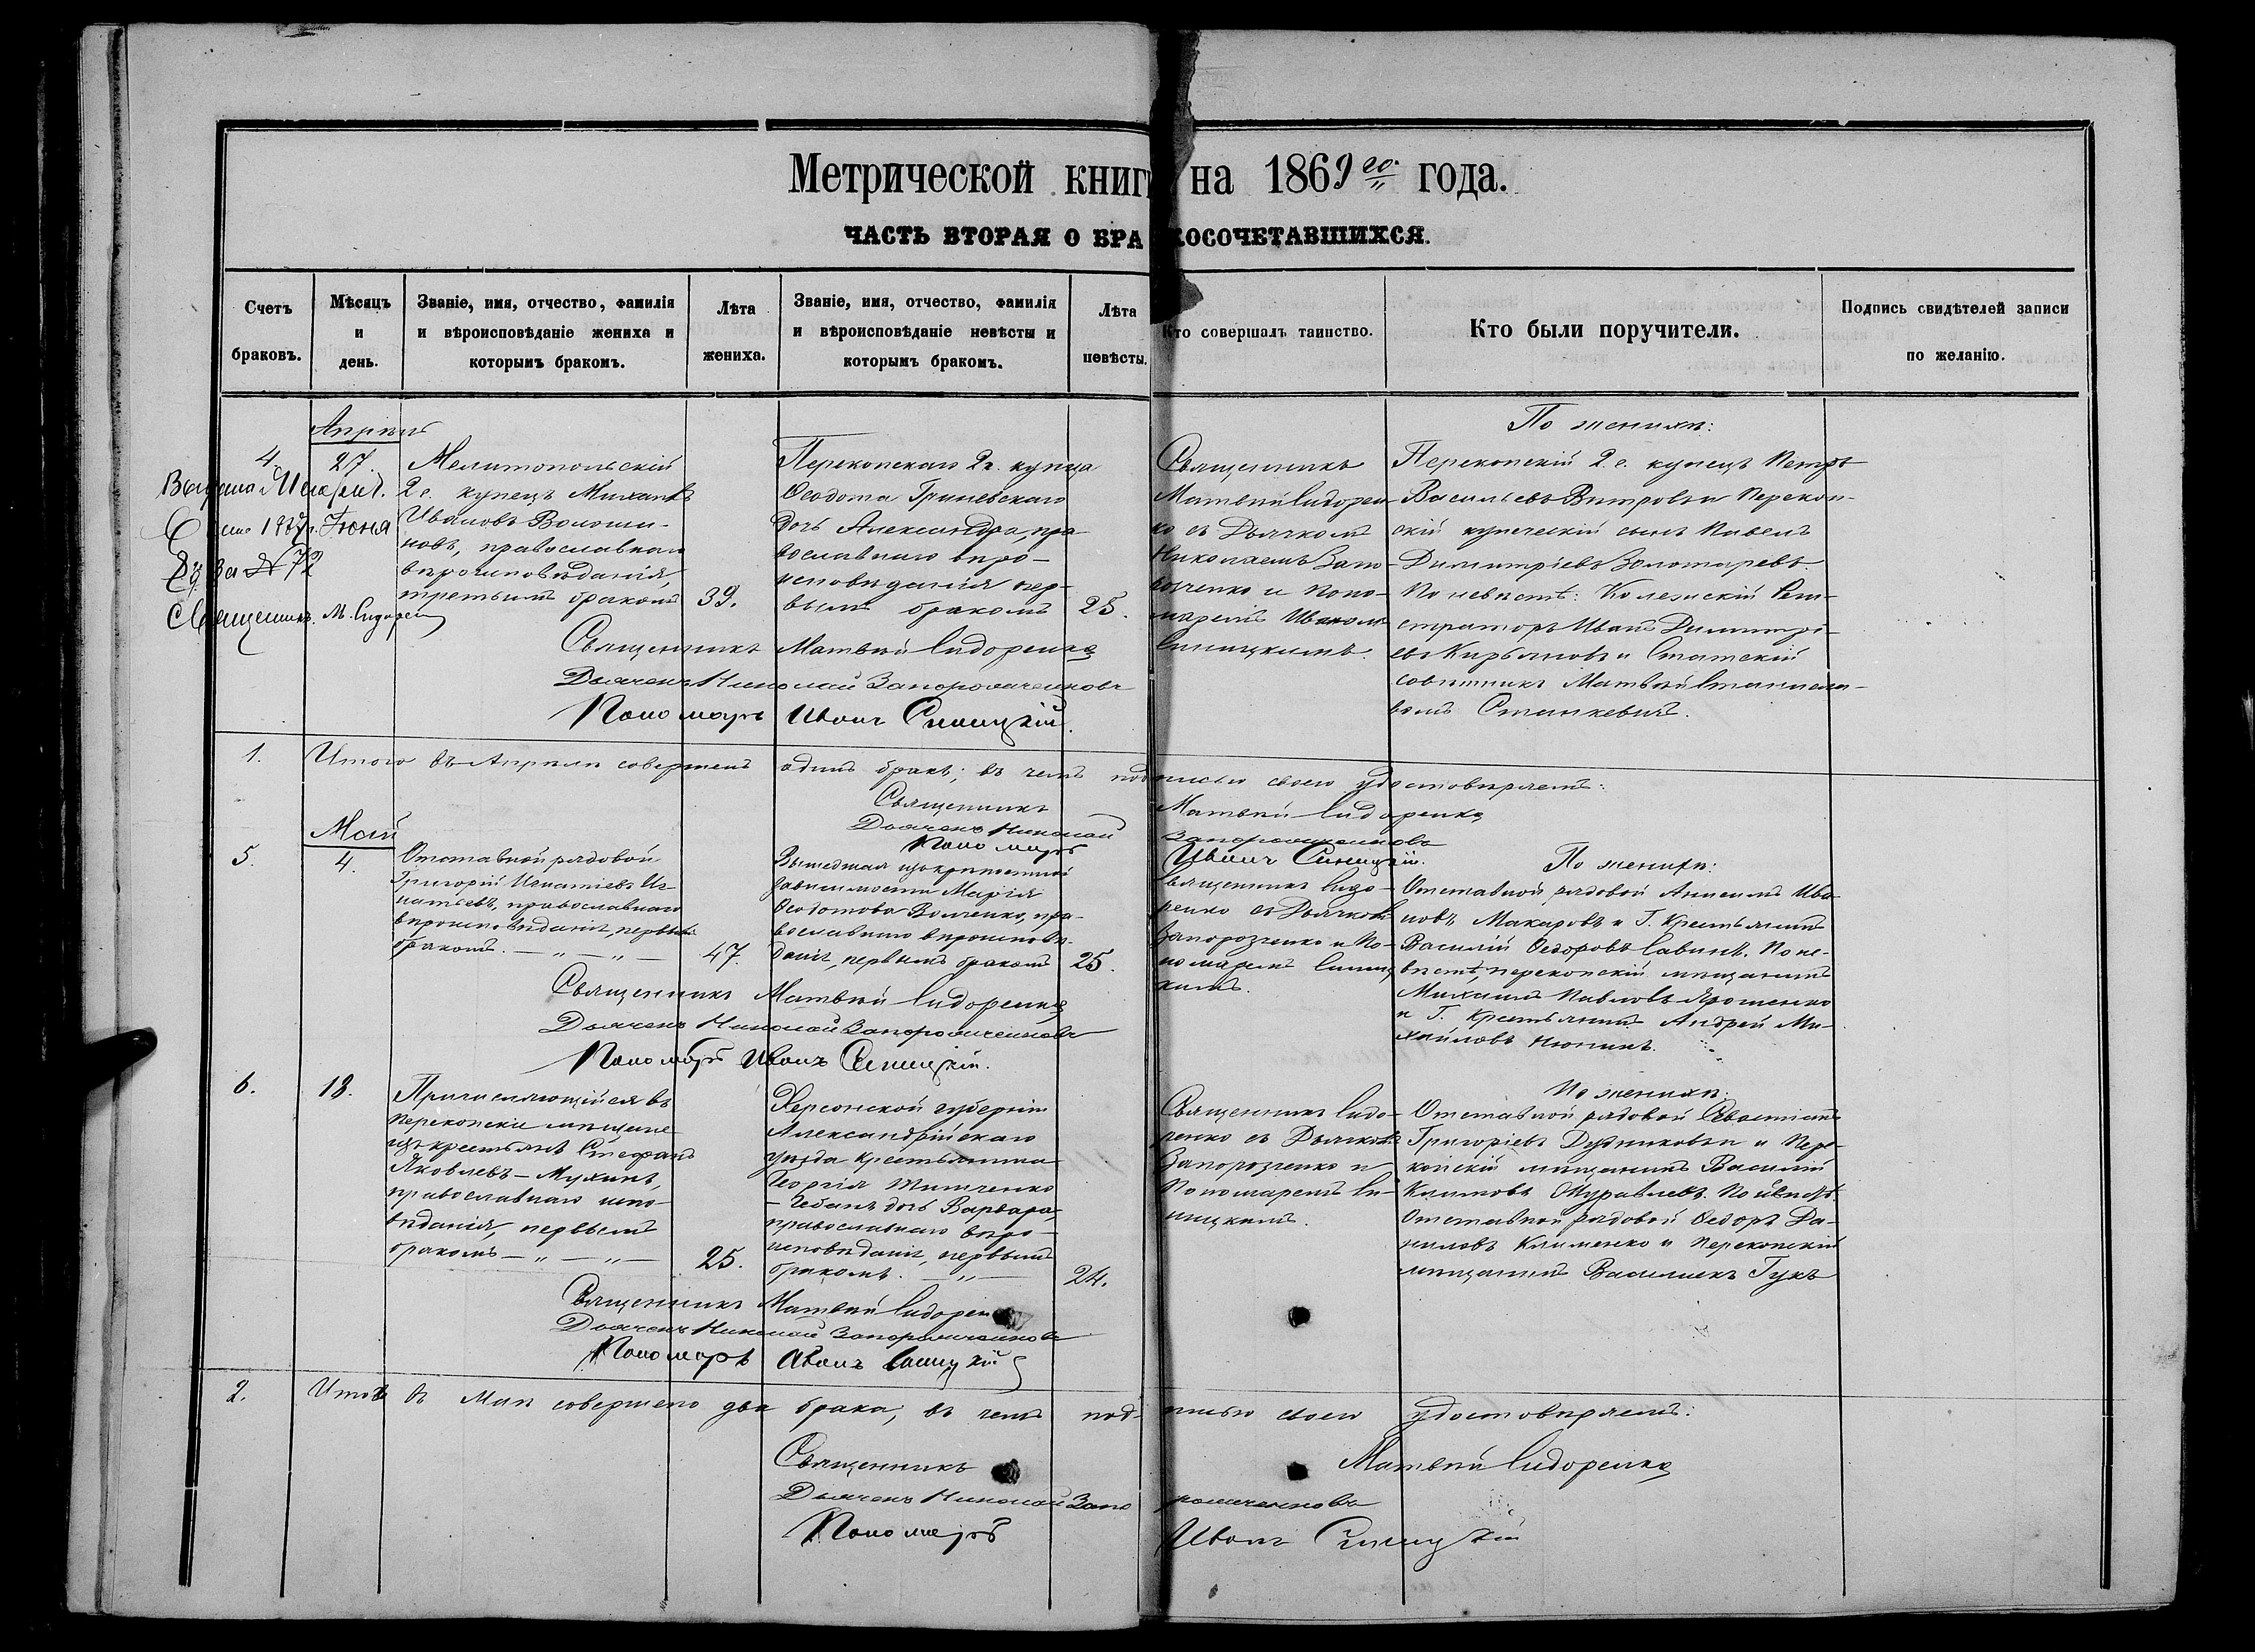 Метрической книг на 1869 го года.
ЧАСТЬ ВТОРАЯ О БРА КОСОЧЕТАВШИХСЯ.
Счетъ
браковъ.
Мѣсяцъ
и
день.
Званіе, имя, отчество, фамилія
и вѣроисповѣданіе жениха и
которымъ бракомъ.
Лѣта
жениха.
Званіе, имя, отчество, фамилія
и вѣроисповѣданіе невѣсты и
которымъ бракомъ.
Лѣта
невѣсты.
Кто совершалъ таинство.
Кто были поручители.
Подпись свидѣтелей записи
по желанію.
Апрѣль
4.
27.
Выдана
Іюня
За № 72
Священникъ М. Сидорен
Мелитопольскій
2 г. купецъ Михаилъ
Ивановъ Волоши-
новъ, православнаго
вѣроисповѣданія,
третьимъ бракомъ
39.
Перекопскаго 2 г. купца
Ѳеодота Гриневскаго
дочь Александра, пра-
вославнаго вѣро-
исповѣданія пер-
вымъ бракомъ
25.
Священникъ
Матвѣй Сидорен-
ко съ Дьячкомъ
Николаемъ Запо-
рожченко и Поно-
маремъ Иваномъ
Синицкимъ.
По женихѣ:
Перекопскій 2 г. купецъ Петръ
Васильевъ Вѣтровъ и Перекоп-
скій купеческій сынъ Павелъ
Димитріевъ Золотаревъ.
По невѣстѣ: Коллежскій Реги-
страторъ Иванъ Димитрі-
евъ Кирьяновъ и Статскій
совѣтникъ Матвѣй Станисла-
вовъ Станкевичъ.
Священникъ Матвѣй Сидоренко
Дьячекъ Николай Запорожченковъ
Пономарь Иванъ Синицкій.
1. Итого въ Апрѣлѣ совершенъ одинъ бракъ; въ чемъ подписью своею удостовѣряемъ:
Священникъ Матвѣй Сидоренко
Дьячекъ Николай Запорожченковъ
Пономарь Иванъ Синицкій.
Май
5.
4.
Отставной рядовой
Григорій Игнатіевъ Иг-
натьевъ, православнаго
вѣроисповѣданія, первымъ
бракомъ. — „ — „ —
47.
Вышедшая изъ крѣпостной
зависимости Марія
Ѳеодотова Волченко, пра-
вославнаго вѣроисповѣ-
данія, первымъ бракомъ
25.
Священникъ Сидо-
ренко съ Дьячкомъ
Запорозченко и По-
номаремъ Синиц-
кимъ.
По женихѣ:
Отставной рядовой Анисимъ Ива-
новъ Макаровъ и Г. Крестьянинъ
Василій Ѳедоровъ Савинъ. По не-
вѣстѣ, перекопскій мѣщанинъ
Михаилъ Павловъ Ярошенко
и Г. Крестьянинъ Андрей Ми-
хайловъ Нюнинъ.
Священникъ Матвѣй Сидоренко
Дьячекъ Николай Запорожченковъ
Пономарь Иванъ Синицкій.
6.
18.
Причисляющійся въ
Перекопскіе мѣщане
изъ крестьянъ Стефанъ
Яковлевъ – Мухинъ,
православнаго испо-
вѣданія, первымъ
бракомъ — „ — „ —
25.
Херсонской губерніи
Александрійскаго
уѣзда крестьянина
Георгія Титченко
– Чебанъ дочь Варвара,
православнаго вѣро-
исповѣданія, первымъ
бракомъ. — „ —
24.
Священникъ Сидо-
ренко съ Дьячкомъ
Запорозченко и
Пономаремъ Си-
ницкимъ.
По женихѣ:
Отставной рядовой Севастіанъ
Григоріевъ Дудниковъ и Пере-
копскій мѣщанинъ Василій
Климовъ Журавлевъ. По невѣстѣ:
Отставной рядовой Ѳедоръ Да-
ниловъ Клименко и Перекопскій
мѣщанинъ Гукъ
Священникъ Матвѣй Сидорен
Дьячекъ Николай Запорожченковъ
Пономарь Иванъ Синицкій
2. Итого въ Маѣ совершено два брака, въ чемъ подписью своею удостовѣряемъ:
Священникъ Матвѣй Сидоренко
Дьячекъ Николай Запорожченковъ
Пономарь Иванъ Синицкій